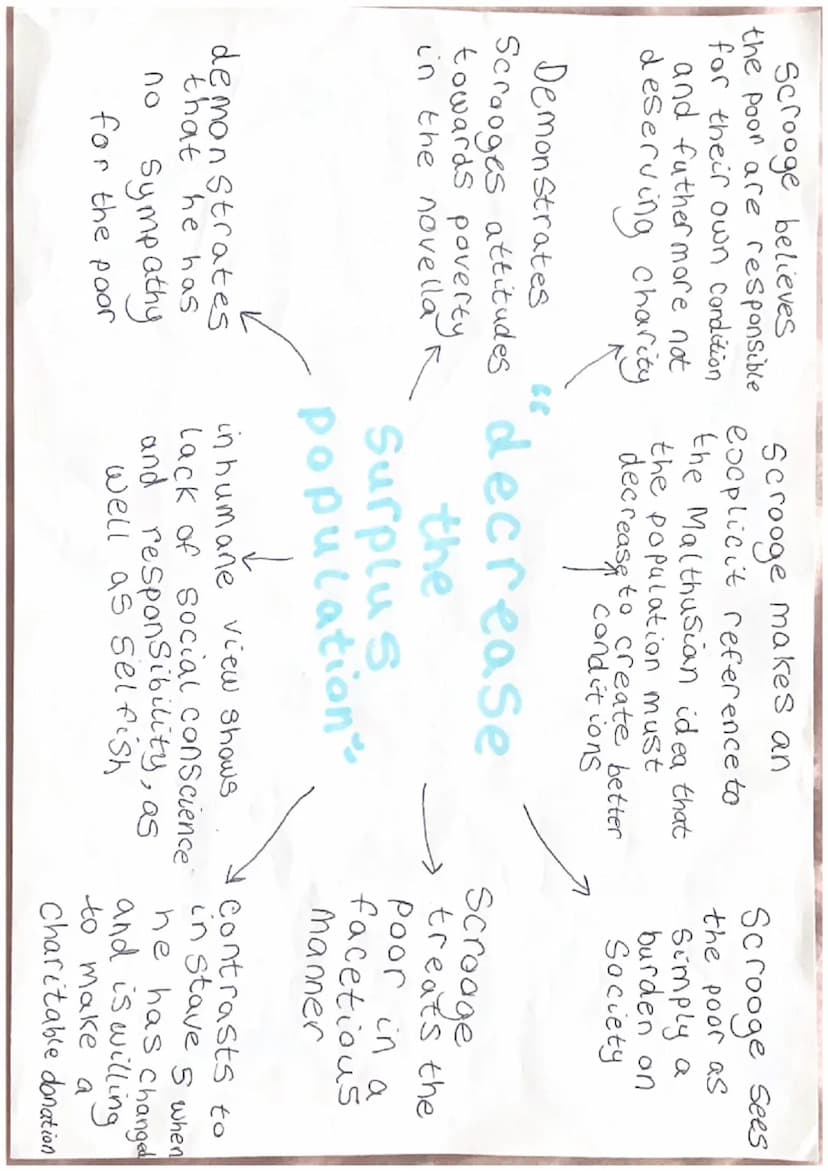 Scrooge believes
the poor are responsible
for their own condition
and futhermore not
deserving charity
Scrooge makes an
explicit reference to
the Malthusian idea that
the population must
decrease to create better
conditions
Scrooge sees
the poor as
simply a
burden on
society
Demonstrates
Scrooges attitudes
towards poverty
in the novella
"decrease
the
surplus
population"
Scrooge
treats the
poor in a
facetious
manner
demonstrates
that he has
no sympathy
for the poor
inhumane view shows
lack of social conscience
and responsibility, as
well as selfish
contrasts to
in stave 5 when
he has changed
and is willing
to make a
charitable donation